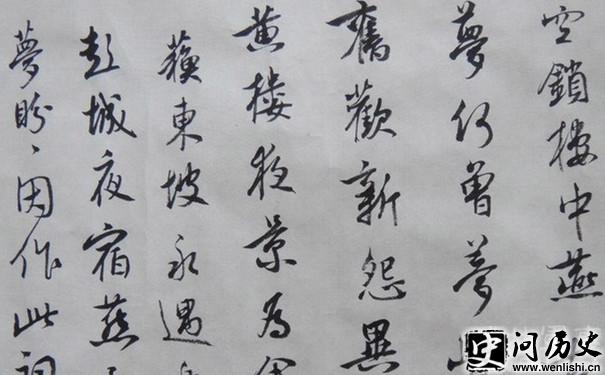 空鎖樓中燕
夢何曾夢
舊歡新怨異
黄楼夜景為
蘇東坡永遇
彭城夜宿燕
夢盼、因作此詞
问历史
www.wenlishi.com